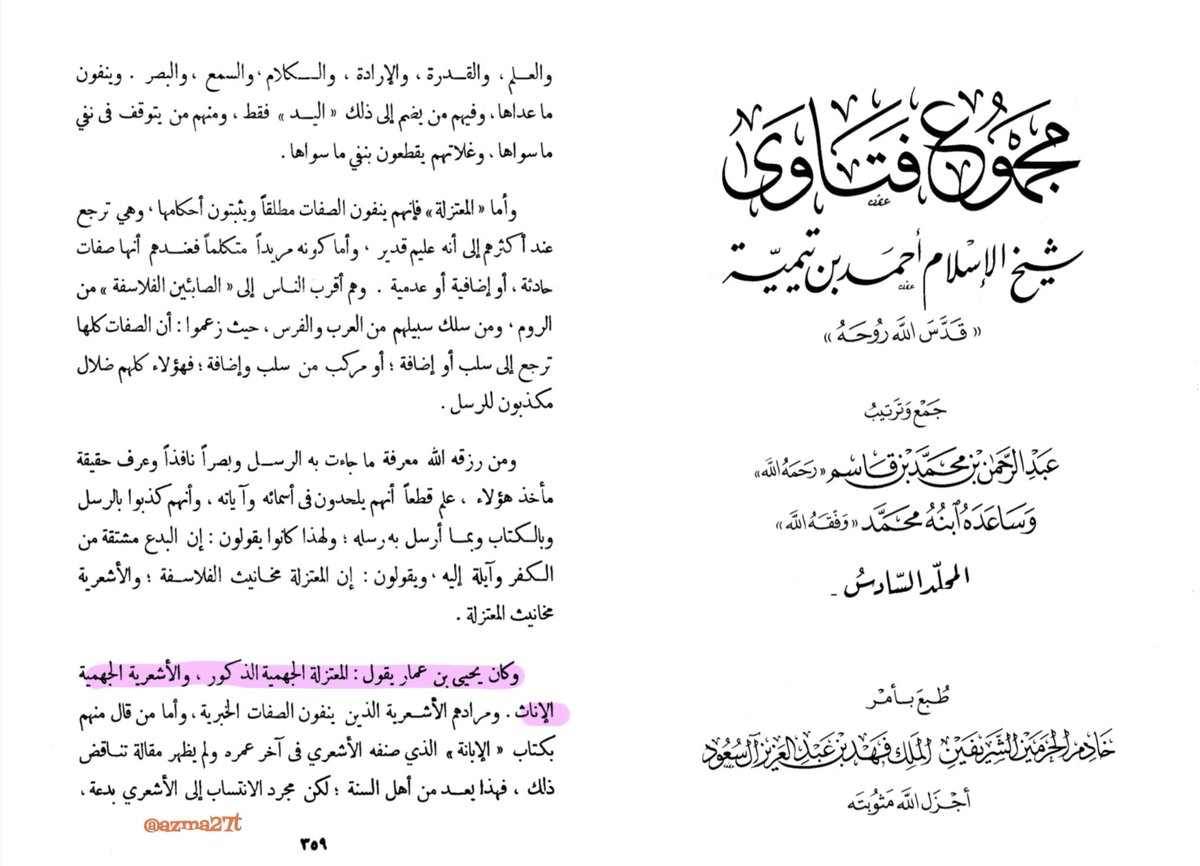 مجموع فتاوى
شيخ الإسلام أحمد بن تيمية
« قدس الله روحه »
جمع وترتيب
عبد الرحمن بن محمد بن قاسم «رحمه الله»
وساعده ابنه محمد «وفقه الله»
المجلد السادس
طبع بأمر
خادم الحرمين الشريفين الملك فهد بن عبد العزيز آل سعود
أجزل الله مثوبته
والعلم، والقدرة، والإرادة، والكلام، والسمع، والبصر. وينفون
ما عداها، وفيهم من يضم إلى ذلك «اليد» فقط، ومنهم من يتوقف في نفي
ما سواها، وغلاتهم يقطعون بنفي ما سواها.
وأما «المعتزلة» فإنهم ينفون الصفات مطلقاً ويثبتون أحكامها، وهي ترجع
عند أكثرهم إلى أنه عليم قدير، وأما كونه مريداً متكلماً فعندهم أنها صفات
حادثة، أو إضافية أو عدمية. وهم أقرب الناس إلى «الصابئين الفلاسفة» من
الروم، ومن سلك سبيلهم من العرب والفرس، حيث زعموا: أن الصفات كلها
ترجع إلى سلب أو إضافة؛ أو مركب من سلب وإضافة؛ فهؤلاء كلهم ضلال
مكذبون للرسل.
ومن رزقه الله معرفة ما جاءت به الرسل وبصراً نافذاً وعرف حقيقة
مأخذ هؤلاء، علم قطعاً أنهم يلحدون في أسمائه وآياته، وأنهم كذبوا بالرسل
وبالكتاب وبما أرسل به رسله؛ ولهذا كانوا يقولون: إن البدع مشتقة من
الكفر وآيلة إليه، ويقولون: إن المعتزلة مخانيث الفلاسفة؛ والأشعرية
مخانيث المعتزلة.
وكان يحيى بن عمار يقول: المعتزلة الجهمية الذكور، والأشعرية الجهمية
الإناث. ومرادهم الأشعرية الذين ينفون الصفات الخبرية، وأما من قال منهم
بكتاب «الإبانة» الذي صنفه الأشعري في آخر عمره ولم يظهر مقالة تناقض
ذلك، فهذا يعد من أهل السنة؛ لكن مجرد الانتساب إلى الأشعري بدعة،
@azma27t
٣٥٩